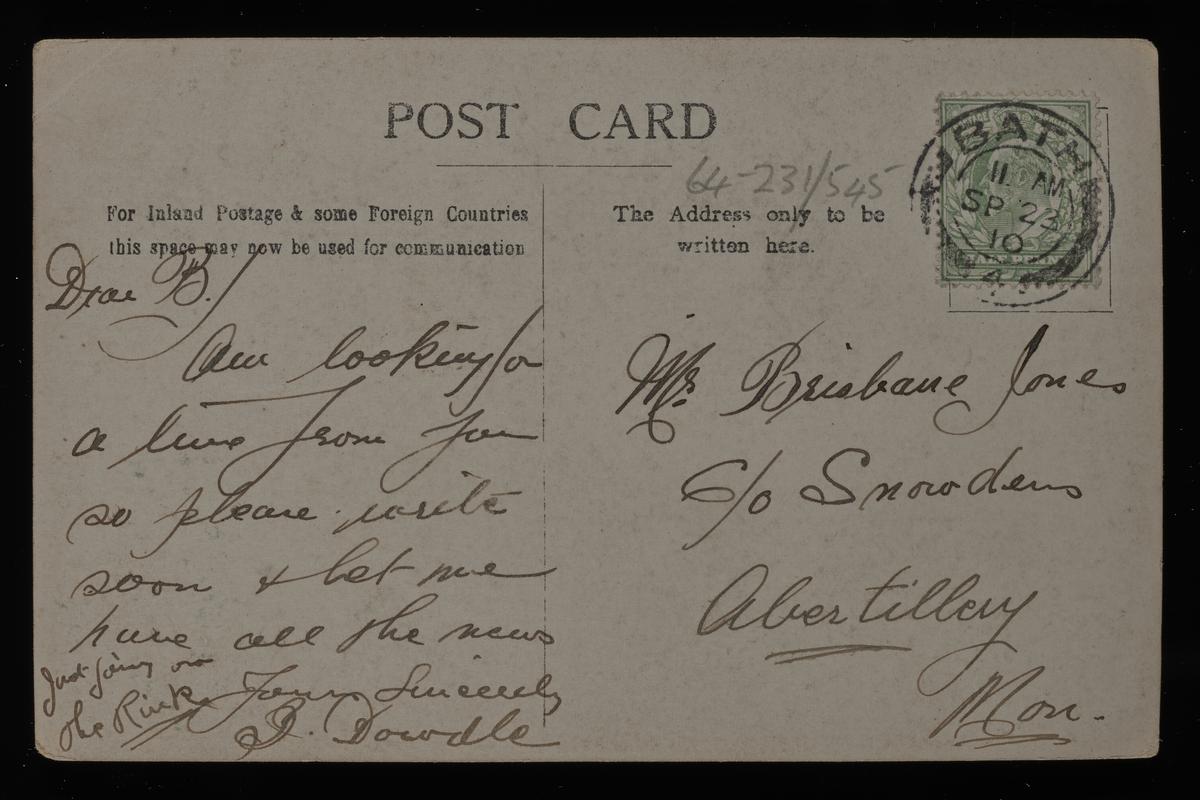 POST CARD
64-231/545
For Inland Postage & some Foreign Countries
this space may now be used for communication
The Address only to be
written here.
BATH
11 AM
SP 23
10
Dear B.
Am looking for
a line from you
so please write
soon & let me
have all the news
Yours Sincerely
Dowdle
Just going on
the Rink
Mr. Brisbane Jones
C/o Snowdens
Abertillery
Mon.